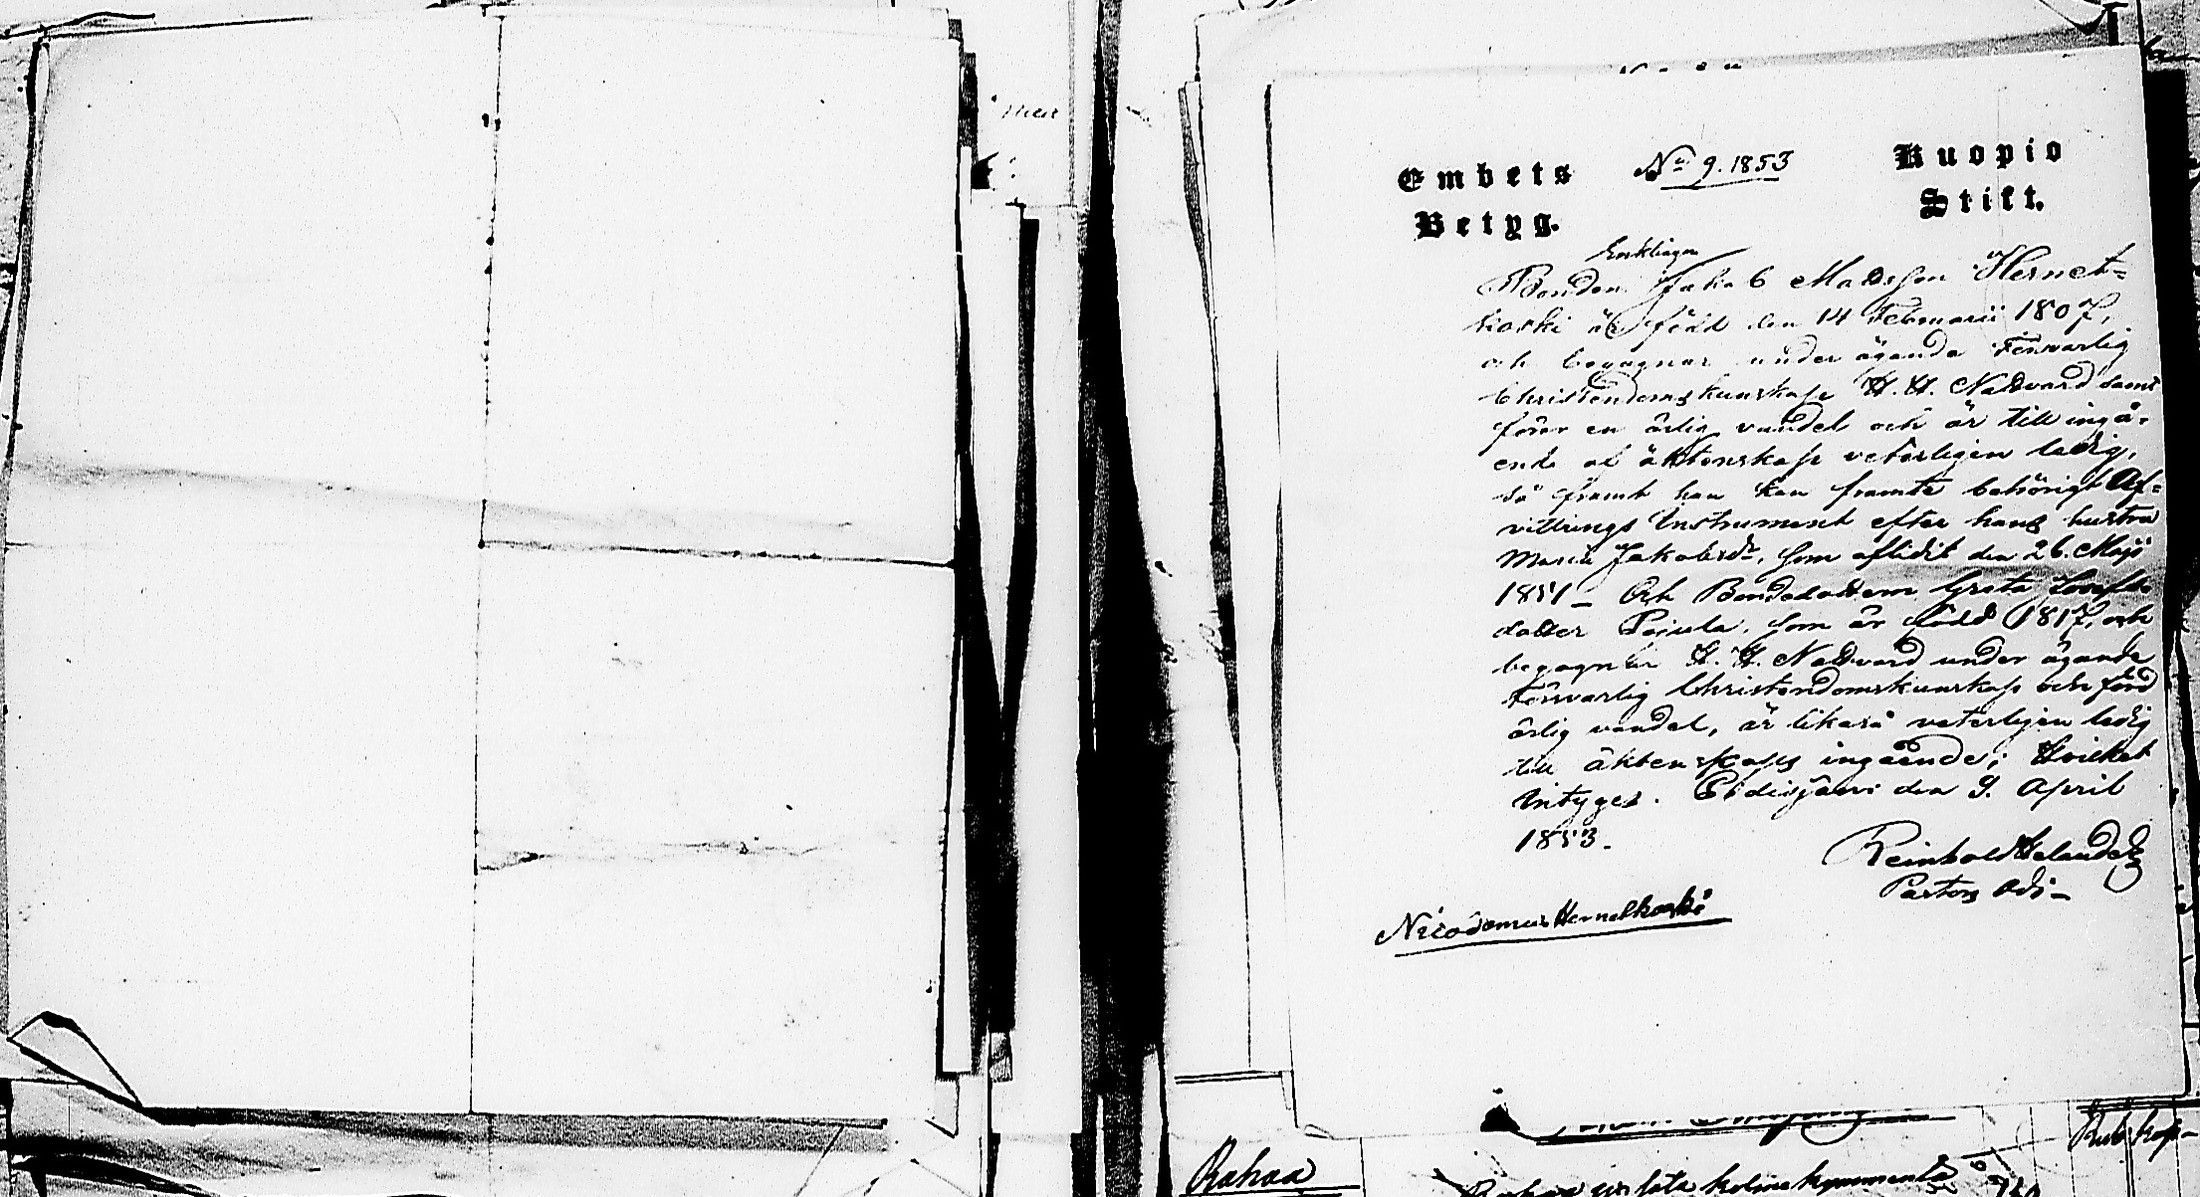 Embets
Betyg.
No 9. 1853
Kuopio
Stift.
Enklingen
Bonden Jakob Matsson Hernet=
koski är född den 14 Februarii 1807,
och begagnar under ägande försvarlig
Christendomskunskap H. H. Nattvard samt
förer en ärlig vandel och är till ingå-
ende af äktenskap veterligen ledig,
så framt han kan framte behörigt Af=
vittrings Instrument efter hans hustru
Maria Jakobsdr, som aflidit den 26. Maji
1851 — Och Bondedottern Greta Josefs
dotter Pajula, som är född 1817, och
begagnar H. H. Nattvard under ägande
försvarlig Christendomskunskap och förd
ärlig vandel, är likaså veterligen ledig
till äktenskaps ingående; Hvilket
Intyges. Pidisjärvi den 9. April
1853.
Reinhold Helander
Pastors Adj—
Nicodemus Hernetkoski
Rahaa
Rahaa kolme kymmentä